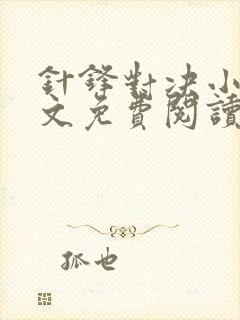 針鋒對決小
文免費閱讀
孤也